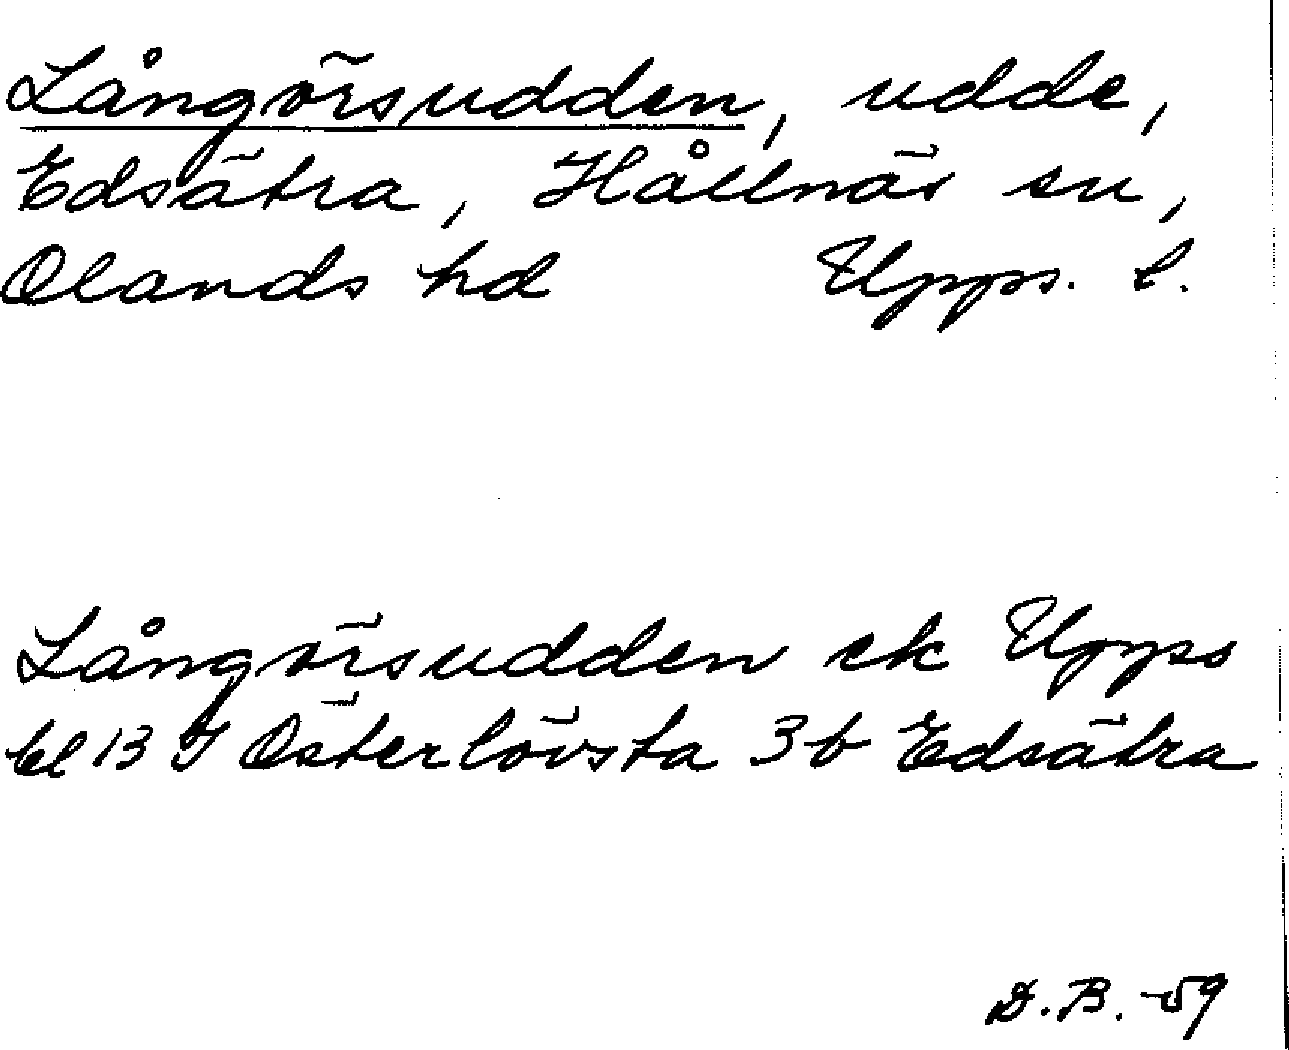 Långörsudden, udde,
Edsätra, Hållnäs sn,
Olands hd Upps. l.
Långörsudden ek Upps
bl 13 I Österlövsta 3b Edsätra
D.B. -59